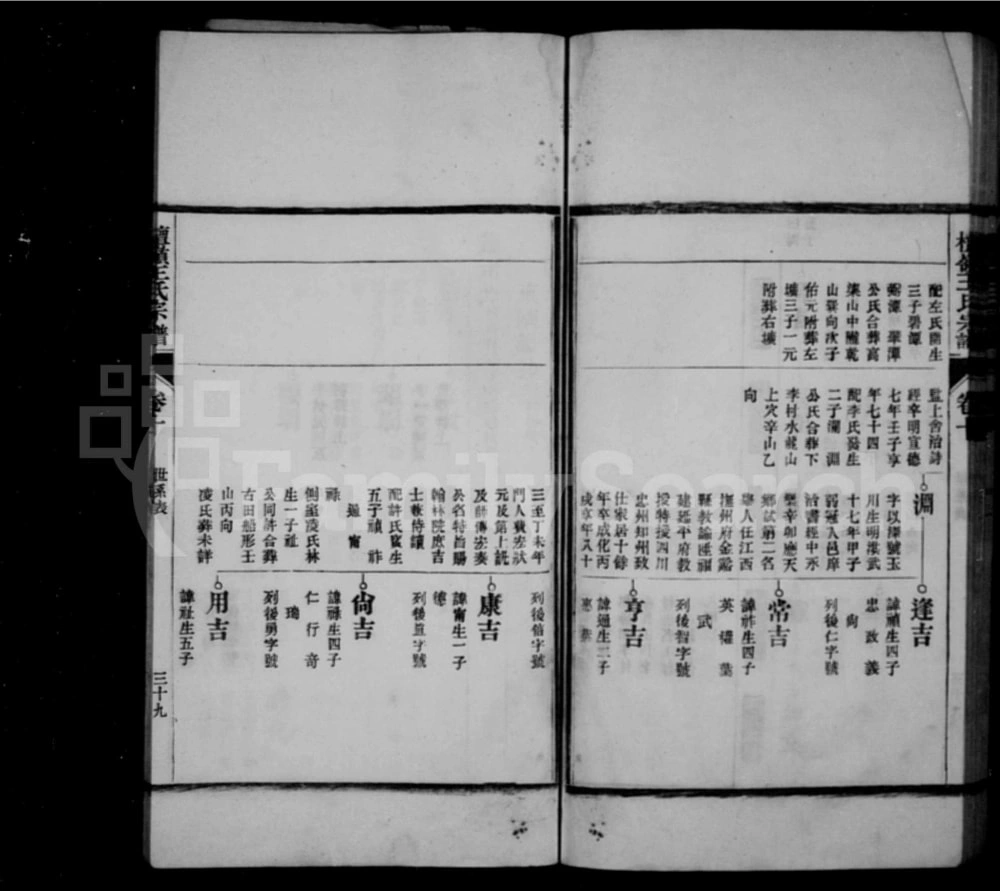 王氏宗譜
卷十
配左氏
三子碧潭
公氏合葬
山中
山巽向次子
佑元附葬左
壙三子一元
附葬右壙
監上舍治詩
經卒明宣德
七年壬子享
年七十四
配李氏
二子瀾 淵
公氏合葬下
李村水
上穴辛山乙
向
淵
字以 號玉
川生明洪武
十七年甲子
弱冠入邑庠
治書經中永
樂辛卯應天
鄉試第二名
舉人任江西
撫州府金谿
縣教諭
建延平府教
授特授四川
忠州知州致
仕家居十餘
年卒成化丙
戌享年八十
三至丁未年
門人
元及第上
及師傅
公名特旨賜
翰林院庶吉
士 侍讀
配許氏 生
五子禎 祚
祿
側室凌氏林
生一子祉
公同許合葬
古田船形壬
山丙向
凌氏葬未詳
逢吉
諱禎生四子
忠 政 義
尚
列後仁字號
常吉
諱祚生四子
英 權
武
列後智字號
亨吉
諱通生二子
列後信字號
康吉
諱甯生一子
德
列後
尙吉
諱祿生四子
仁 行 奇
列後勇字號
用吉
諱祉生五子
王氏宗譜
卷十
世系表
三十九
FamilySearch